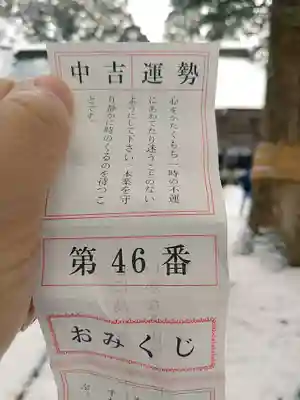 中吉運勢
心をかたくもち一時の不運
にあわてたり迷うことのない
ようにして下さい 本業を守
り静かに時のくるのを待つこ
とです。
第46番
おみくじ